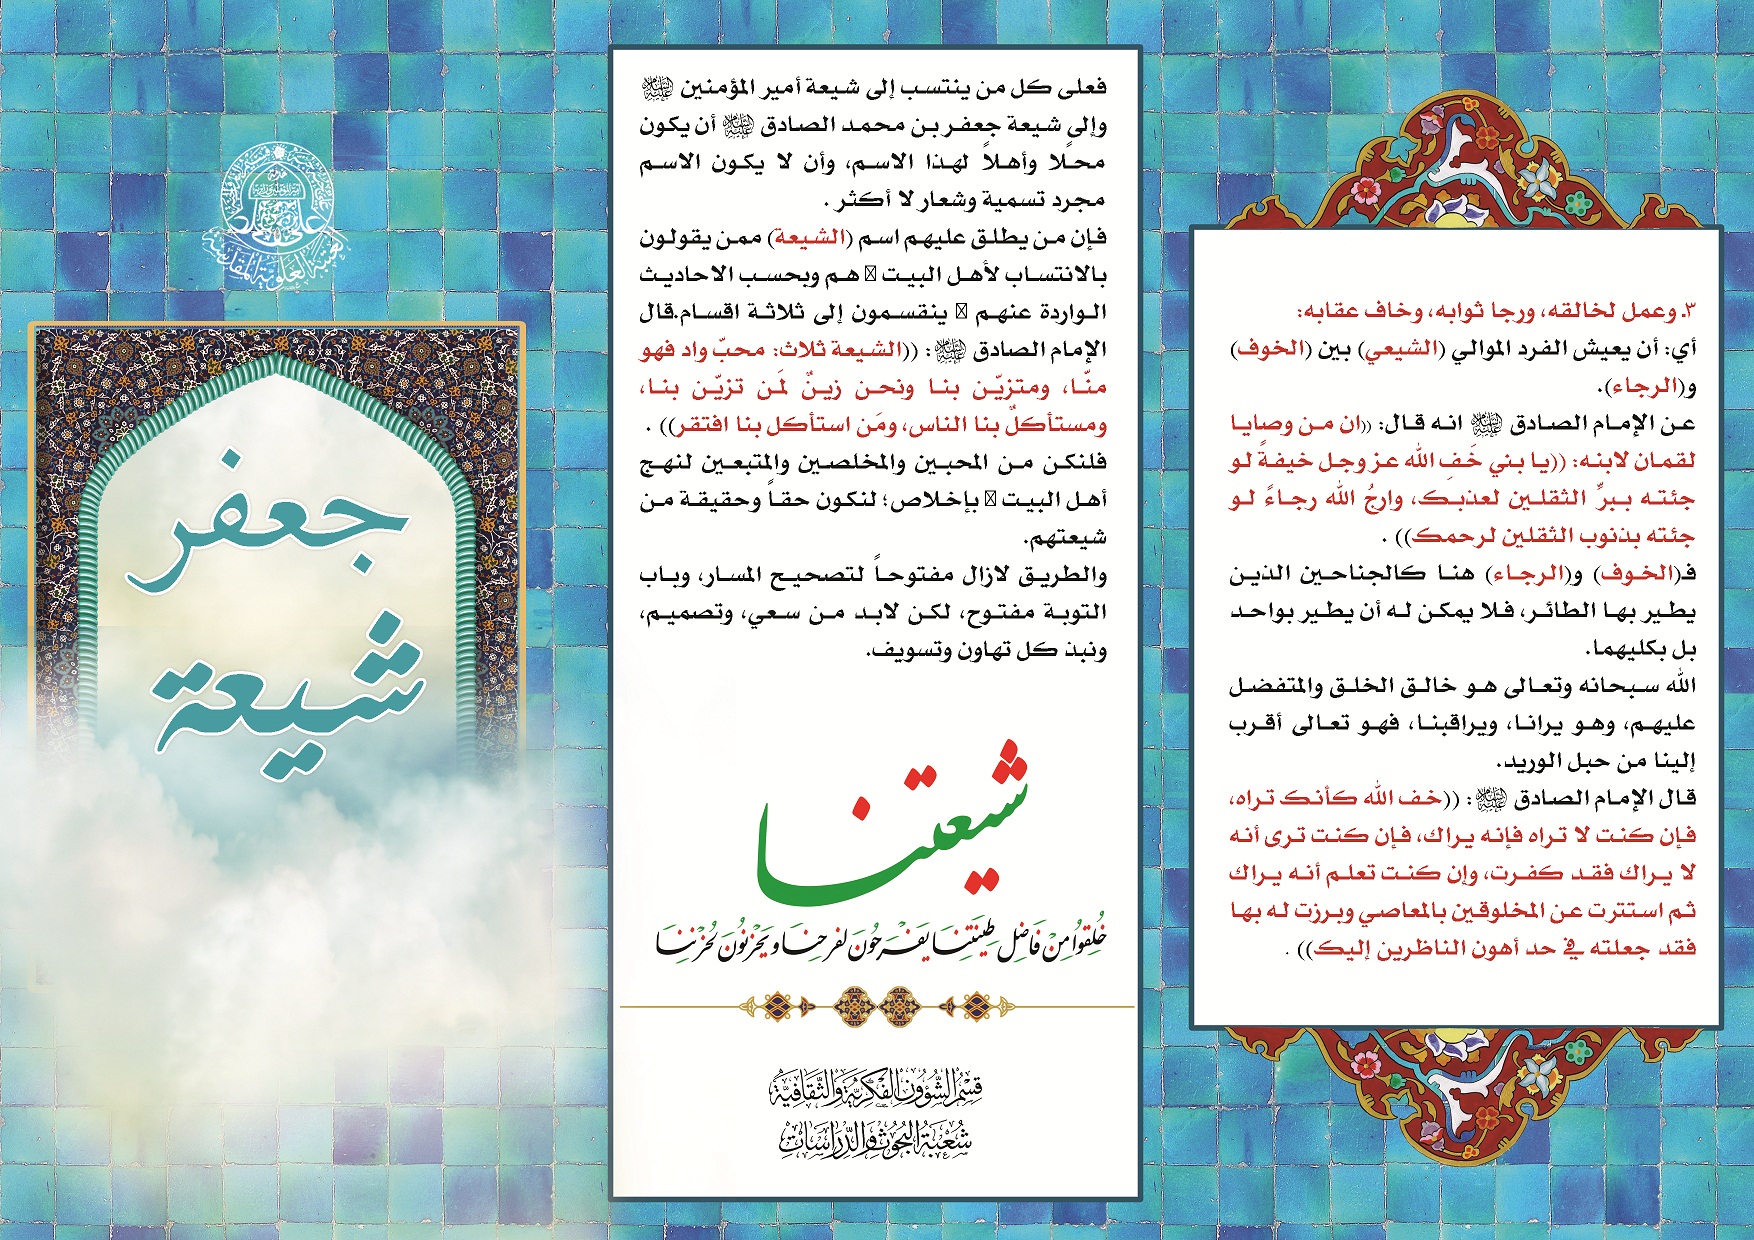 ٣. وعمل لخالقه، ورجا ثوابه، وخاف عقابه:
أي: أن يعيش الفرد الموالي (الشيعي) بين (الخوف)
و(الرجاء).
عن الإمام الصادق عليه السلام انه قال: ((ان من وصايا
لقمان لابنه: ((يا بني خَفِ الله عز وجل خيفةً لو
جئته ببرِّ الثقلين لعذبك، وارجُ الله رجاءً لو
جئته بذنوب الثقلين لرحمك)) .
فـ(الخوف) و(الرجاء) هنا كالجناحين الذين
يطير بها الطائر، فلا يمكن له أن يطير بواحد
بل بكليهما.
الله سبحانه وتعالى هو خالق الخلق والمتفضل
عليهم، وهو يرانا، ويراقبنا، فهو تعالى أقرب
إلينا من حبل الوريد.
قال الإمام الصادق عليه السلام: ((خف الله كأنك تراه،
فإن كنت لا تراه فإنه يراك، فإن كنت ترى أنه
لا يراك فقد كفرت، وإن كنت تعلم أنه يراك
ثم استترت عن المخلوقين بالمعاصي وبرزت له بها
فقد جعلته في حد أهون الناظرين إليك)) .
فعلى كل من ينتسب إلى شيعة أمير المؤمنين عليه السلام
وإلى شيعة جعفر بن محمد الصادق عليه السلام أن يكون
محلاً وأهلاً لهذا الاسم، وأن لا يكون الاسم
مجرد تسمية وشعار لا أكثر .
فإن من يطلق عليهم اسم (الشيعة) ممن يقولون
بالانتساب لأهل البيت هم وبحسب الاحاديث
الواردة عنهم ينقسمون إلى ثلاثة اقسام.قال
الإمام الصادق عليه السلام: ((الشيعة ثلاث: محبّ واد فهو
منّا، ومتزيّن بنا ونحن زينٌ لَمن تزيّن بنا،
ومستأكلٌ بنا الناس، ومَن استأكل بنا افتقر)) .
فلنكن من المحبين والمخلصين والمتبعين لنهج
أهل البيت بإخلاص؛ لنكون حقاً وحقيقة من
شيعتهم.
والطريق لازال مفتوحاً لتصحيح المسار، وباب
التوبة مفتوح، لكن لابد من سعي، وتصميم،
ونبذ كل تهاون وتسويف.
شيعتنا
خُلِقوُا مِنْ فَاضِل طِينَتِنا يَفْرَحُونَ لفرحِنا ويَحْزنُونَ لُحزْنِنا
قِسْمُ الشُّؤُونِ الفِكْرِيَّةِ وَالثَّقَافِيَّةِ
شُعْبَةُ البُحُوثِ وَالدِّرَاسَاتِ
العتبة العلوية المقدسة
جعفر
شيعة